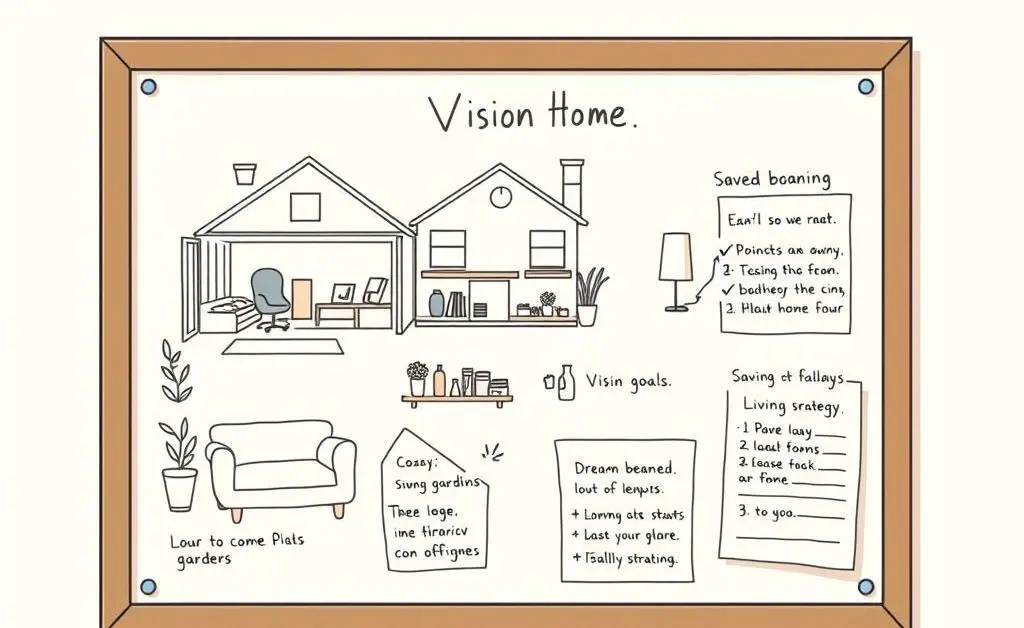 Vision Home.
Saved boaning
Ean'l so we reat.
✓ Poincts are owny.
2- Tesing the feon.
✓ badhecy the ciny
3. Hlaut hone Four
Visin goals.
Saving ct fallays
Living srategy.
1 Pave lauy
2. laadt foms
3. Eease fock
ar fone
3. to you.
Cozay:
Siung gardins
Thee loge,
ine tiraricv
con offignes
Dream beaned.
lout of lenpts.
+ Lornng ats stasts
+ Last your glare.
+ Fsallly strating.
Lour to come Plats
garders